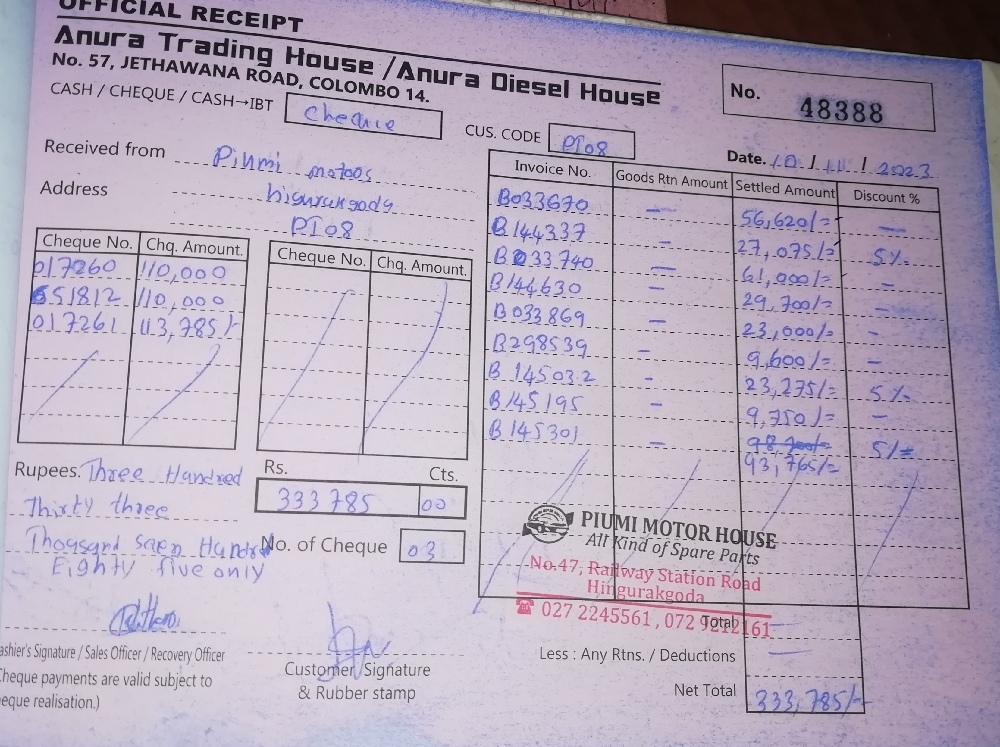 OFFICIAL RECEIPT
Anura Trading House / Anura Diesel House
No. 57, JETHAWANA ROAD, COLOMBO 14.
No. 48388
CASH / CHEQUE / CASH→IBT cheque
CUS. CODE PI08
Date. 10 / 11 / 2023
Received from Piumi motoos
Address higurukgoda
PI08
Cheque No. Chq. Amount.
017260 110,000
651812 110,000
017261 113,785/-
Cheque No. Chq. Amount.
Invoice No. Goods Rtn Amount Settled Amount Discount %
B033670 — 56,620/= —
B144337 — 27,075/= 5%
B033740 — 61,000/= —
B144630 — 29,700/= —
B033869 — 23,000/= —
B298539 — 9,600/= —
B145032 — 23,275/= 5%
B145195 — 9,750/= —
B145301 — 98,700/= 5/=
93,765/=
Rupees. Three Hundred
Thirty three
Thousand Seen Hundred
Eighty five only
Rs. Cts.
333 785 00
No. of Cheque 03
PIUMI MOTOR HOUSE
All Kind of Spare Parts
No.47, Railway Station Road
Hingurakgoda
☎ 027 2245561 , 072 9212161
Total —
Less : Any Rtns. / Deductions —
Net Total 333,785/-
ashier's Signature / Sales Officer / Recovery Officer
heque payments are valid subject to
eque realisation.)
Customer Signature
& Rubber stamp